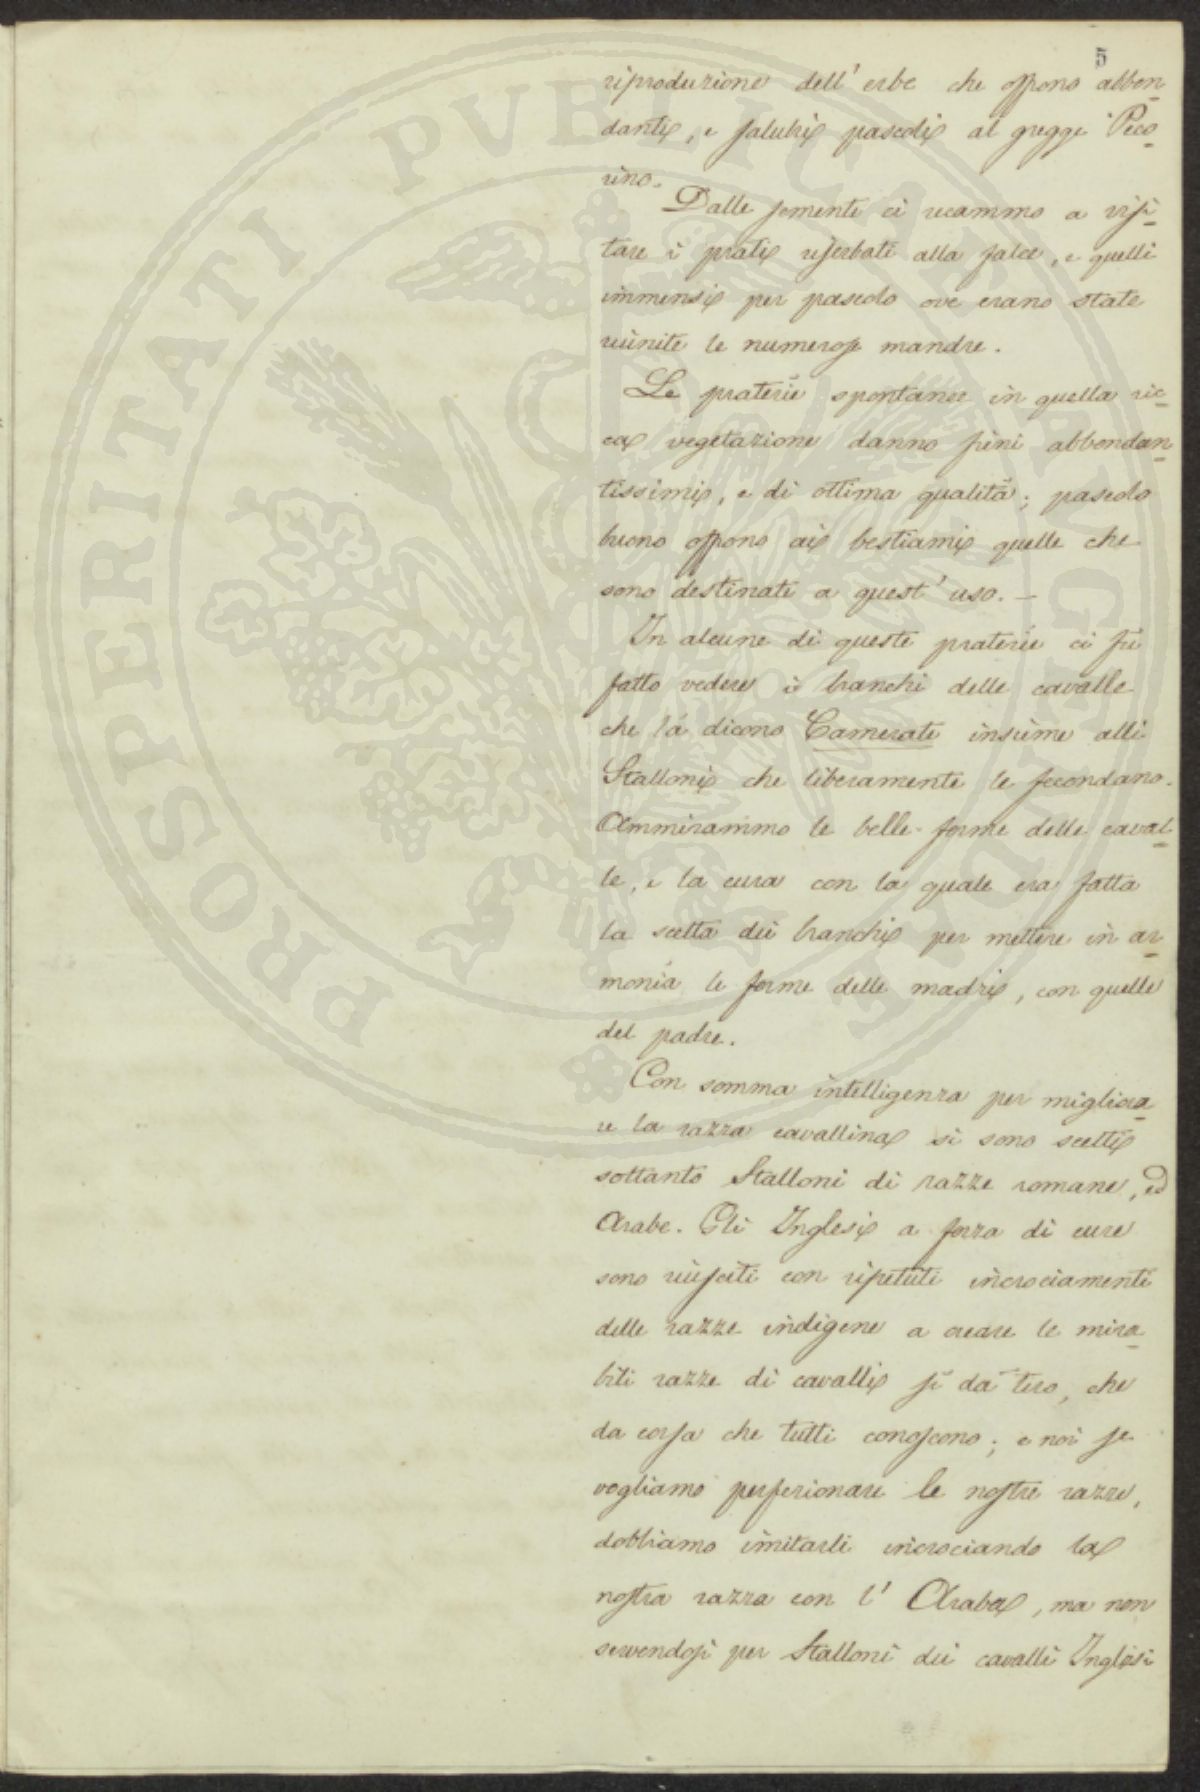 5
riproduzione dell' erbe che offrono abbon-
danti, e salubri pascoli al gregge Peco-
rino.
Dalle sementi ci recammo a visi-
tare i prati riserbati alla falce, e quelli
immensi per pascolo ove erano state
riunite le numerose mandre.
Le praterie spontanee in quella ric-
ca vegetazione danno fieni abbondan-
tissimi, e di ottima qualità; pascolo
buono offrono ai bestiami quelle che
sono destinate a quest' uso. —
In alcune di queste praterie ci fù
fatto vedere i branchi delle cavalle
che là dicono Camerate insieme alli
Stalloni che liberamente le fecondano.
Ammirammo le belle forme delle caval-
le, e la cura con la quale era fatta
la scelta dei branchi per mettere in ar-
monia le forme delle madri, con quelle
del padre.
Con somma intelligenza per migliora-
re la razza cavallina si sono scelti
soltanto Stalloni di razze romane, ed
Arabe. Gli Inglesi a forza di cure
sono riusciti con ripetuti incrociamenti
delle razze indigene a creare le mira-
bili razze di cavalli sì da tiro, che
da corsa che tutti conoscono; e noi se
vogliamo perfezionare le nostre razze,
dobbiamo imitarli incrociando la
nostra razza con l' Araba, ma non
servendosi per Stalloni dei cavalli Inglesi
PROSPERITATI PUBLICAE AUGENDAE